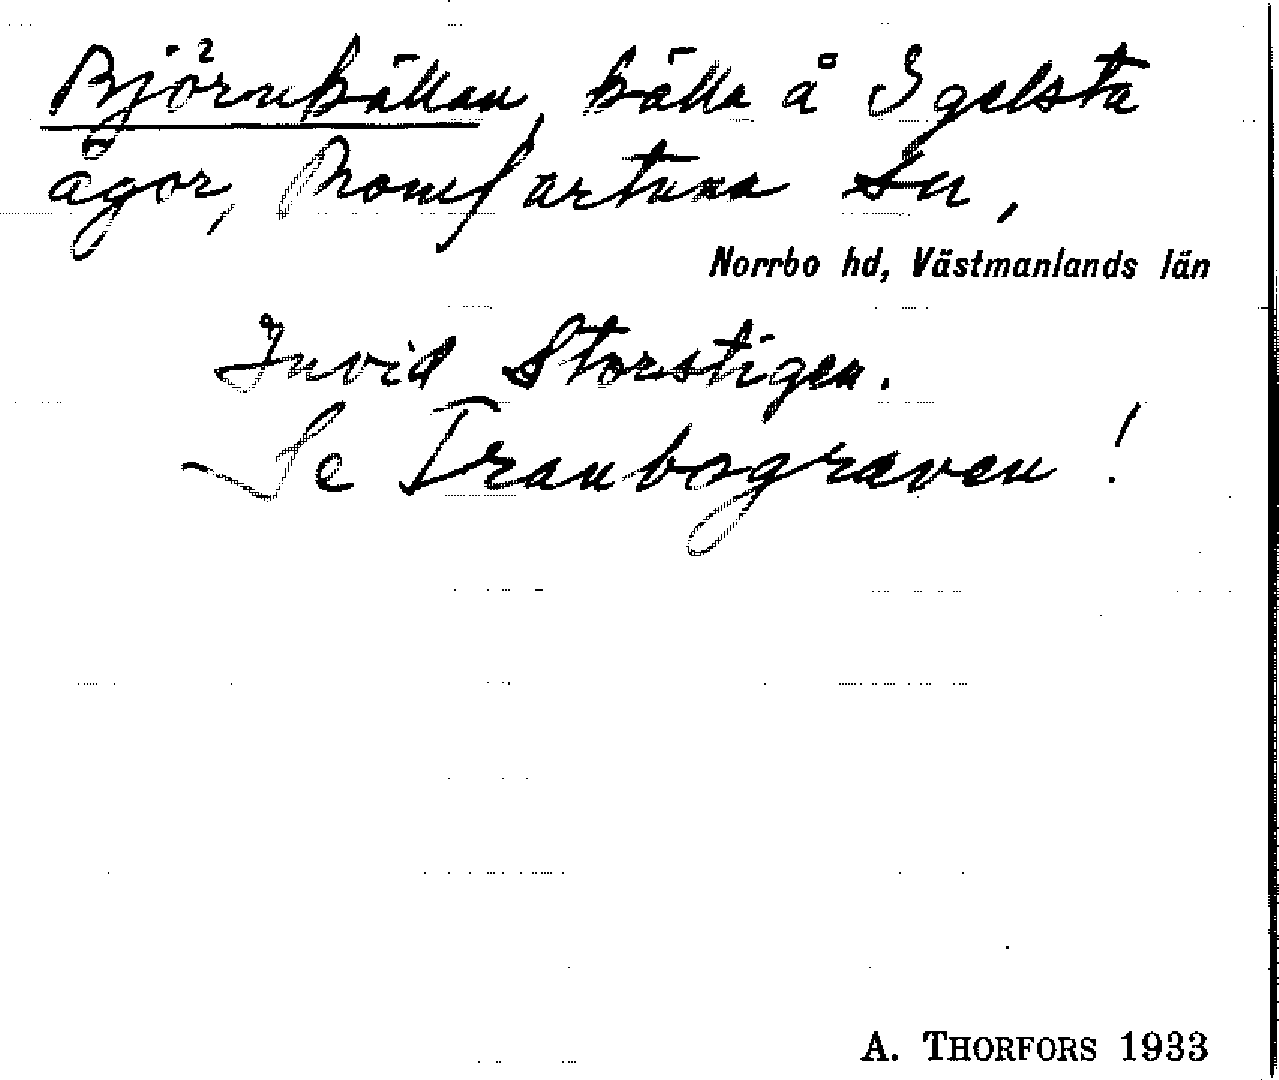 Björnkällan, källa å Igelsta
ägor, Romfartuna sn,
Norrbo hd, Västmanlands län
Invid Storstigen.
Se Tranbograven!
A. THORFORS 1933